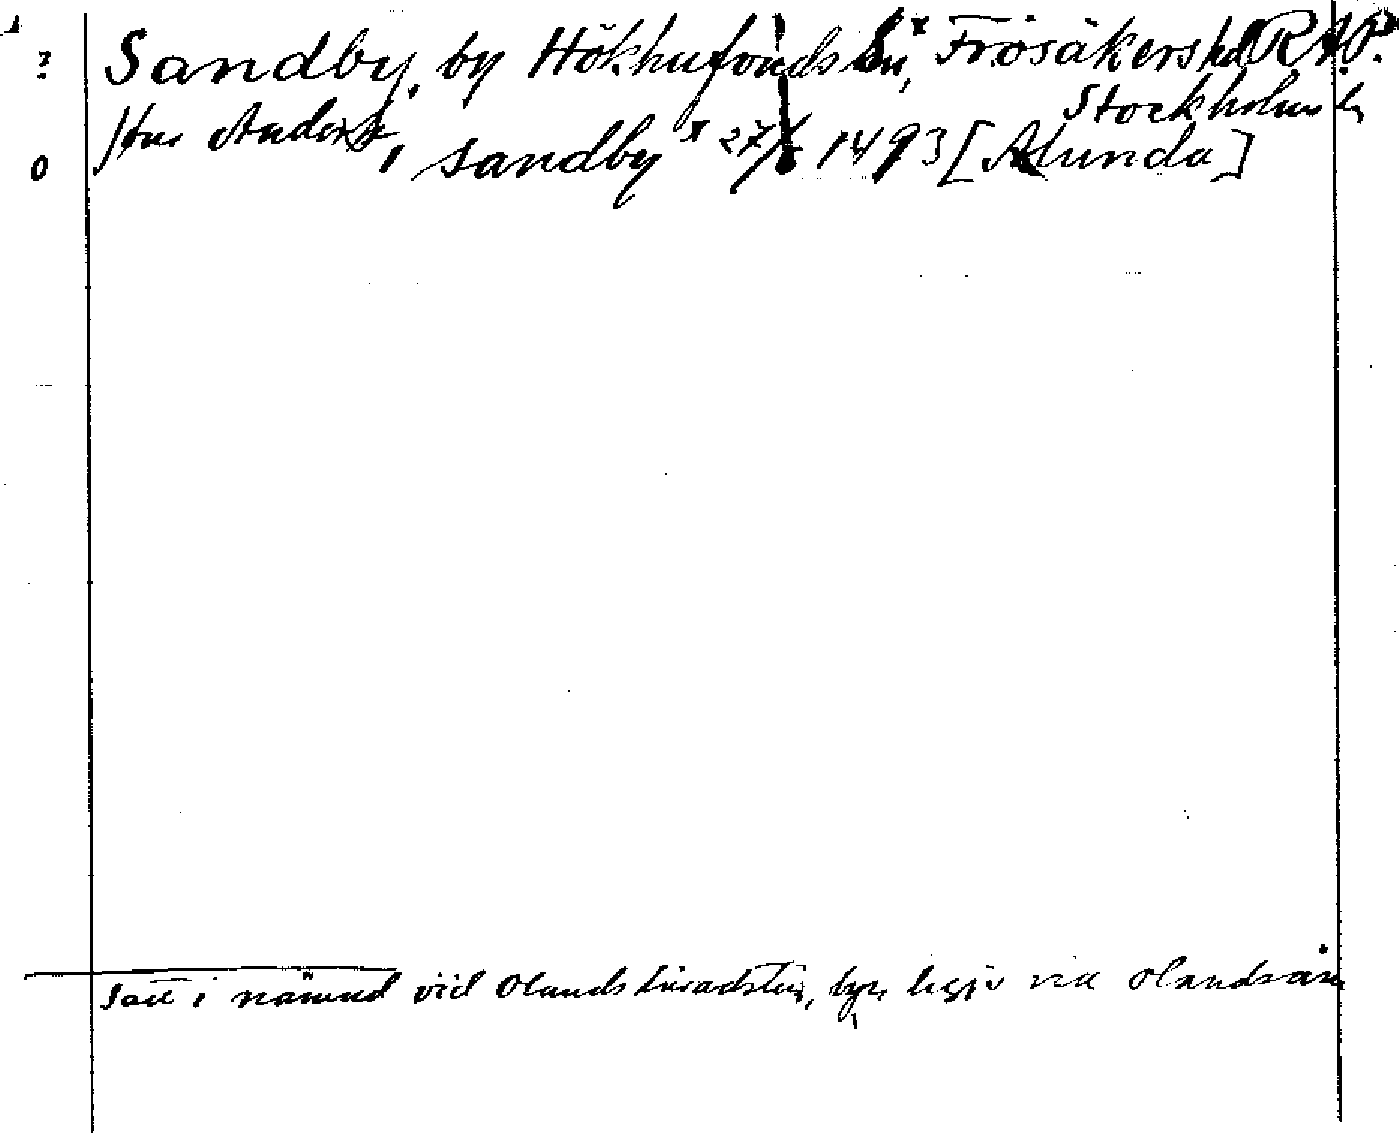 ? Sandby, by Hökhufvuds sn, Frösåkers hd RAP.
Stockholms l.
0 Hus Anders, sandby x 27/5 1493 [Alunda]
Satt i nämnd vid Olands häradsting, byn ligger vid Olandsån